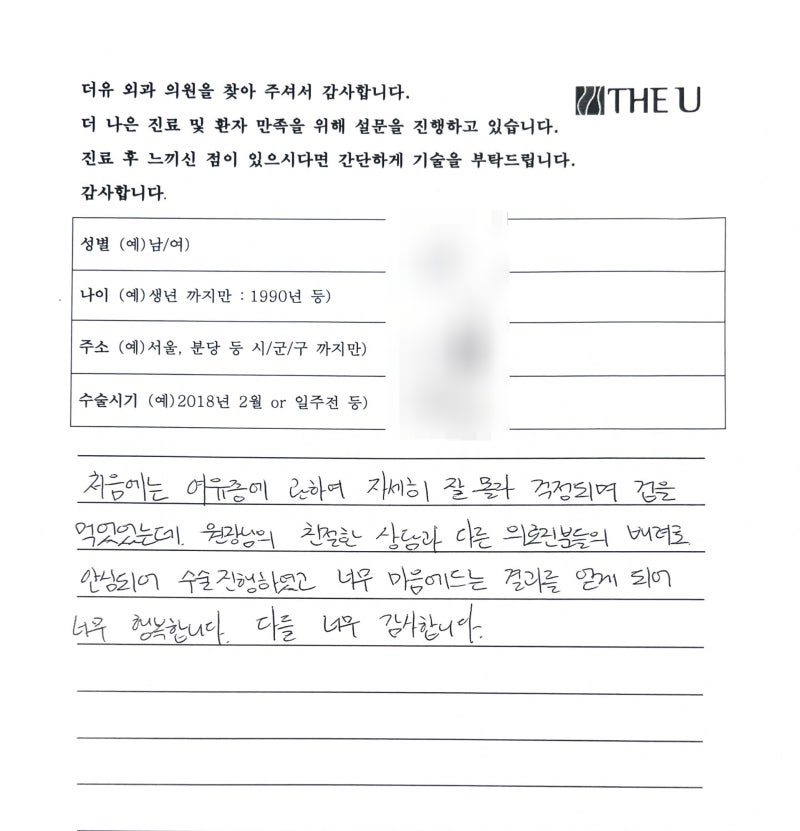 더유 외과 의원을 찾아 주셔서 감사합니다.
THE U
더 나은 진료 및 환자 만족을 위해 설문을 진행하고 있습니다.
진료 후 느끼신 점이 있으시다면 간단하게 기술을 부탁드립니다.
감사합니다.
성별 (예)남/여)
나이 (예)생년 까지만 : 1990년 등)
주소 (예)서울, 분당 등 시/군/구 까지만)
수술시기 (예)2018년 2월 or 일주전 등)
처음에는 여유증에 관하여 자세히 잘 몰라 걱정되며 겁을
먹었었는데. 원장님의 친절한 상담과 다른 의료진분들의 배려로
안심되어 수술진행하였고 너무 마음에드는 결과를 얻게 되어
너무 행복합니다. 다들 너무 감사합니다.